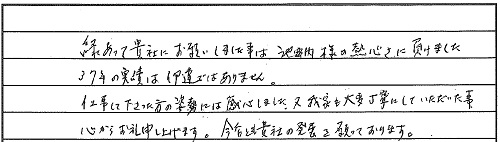 縁あって貴社にお願いしました事は池内様の熱心さに負けました
37年の実績は伊達ではありません。
仕事して下さった方の姿勢には感心しました。又我家も大変丁寧にしていただいた事
心からお礼申し上げます。今后とも貴社の発展を願っております。